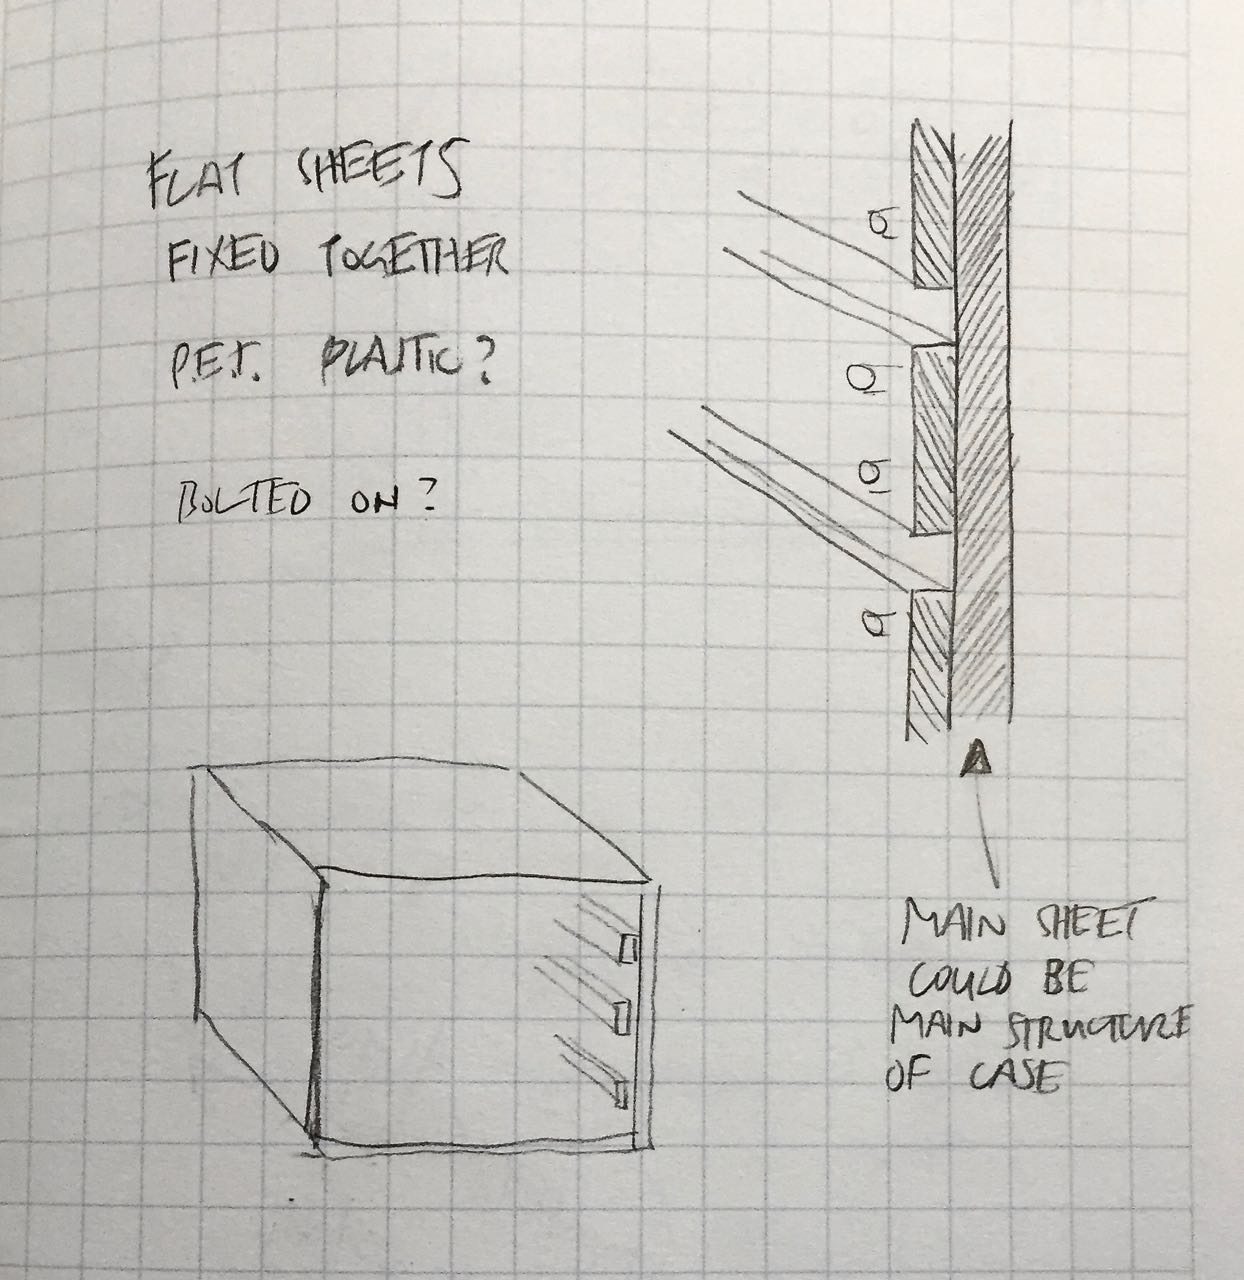 FLAT SHEETS
FIXED TOGETHER
P.E.T. PLASTIC?
BOLTED ON?
MAIN SHEET
COULD BE
MAIN STRUCTURE
OF CASE